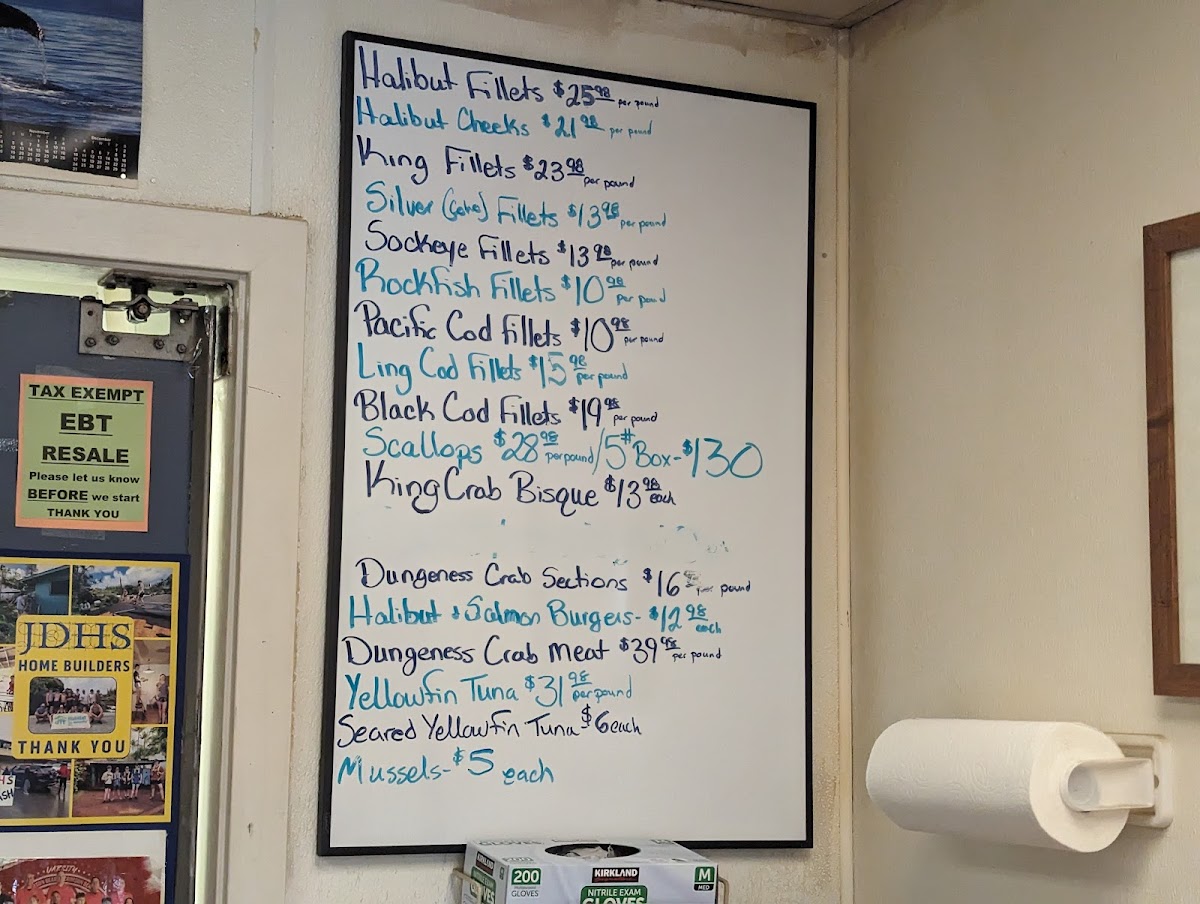 Halibut Fillets $25.98 per pound
Halibut Cheeks $21.98 per pound
King Fillets $23.98 per pound
Silver (Coho) Fillets $13.98 per pound
Sockeye Fillets $13.98 per pound
Rockfish Fillets $10.98 per pound
Pacific Cod Fillets $10.98 per pound
Ling Cod Fillets $15.98 per pound
Black Cod Fillets $19.98 per pound
Scallops $28.98 per pound/5# Box-$130
King Crab Bisque $13.98 each
Dungeness Crab Sections $16 per pound
Halibut & Salmon Burgers-$12.98 each
Dungeness Crab Meat $39.98 per pound
Yellowfin Tuna $31.98 per pound
Seared Yellowfin Tuna-$6 each
Mussels-$5 each
November
December
TAX EXEMPT
EBT
RESALE
Please let us know
BEFORE we start
THANK YOU
JDHS
HOME BUILDERS
THANK YOU
200
GLOVES
KIRKLAND
NITRILE EXAM
GLOVES
M
MED